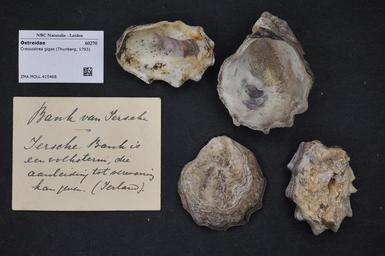 NBC Naturalis - Leiden
Ostreidae 60270
Crassostrea gigas (Thunberg, 1793)
ZMA.MOLL.415468
Bank van Iersche
Iersche Bank is
een volksterm, die
aanleiding tot verwarring
kan geven. (Ierland).